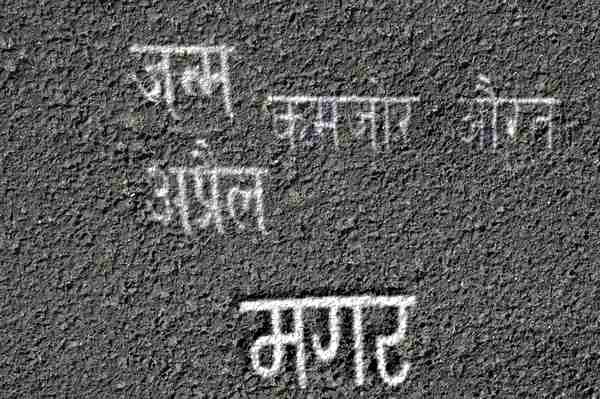 जन्म
कमजोर औरत
अप्रैल
मगर